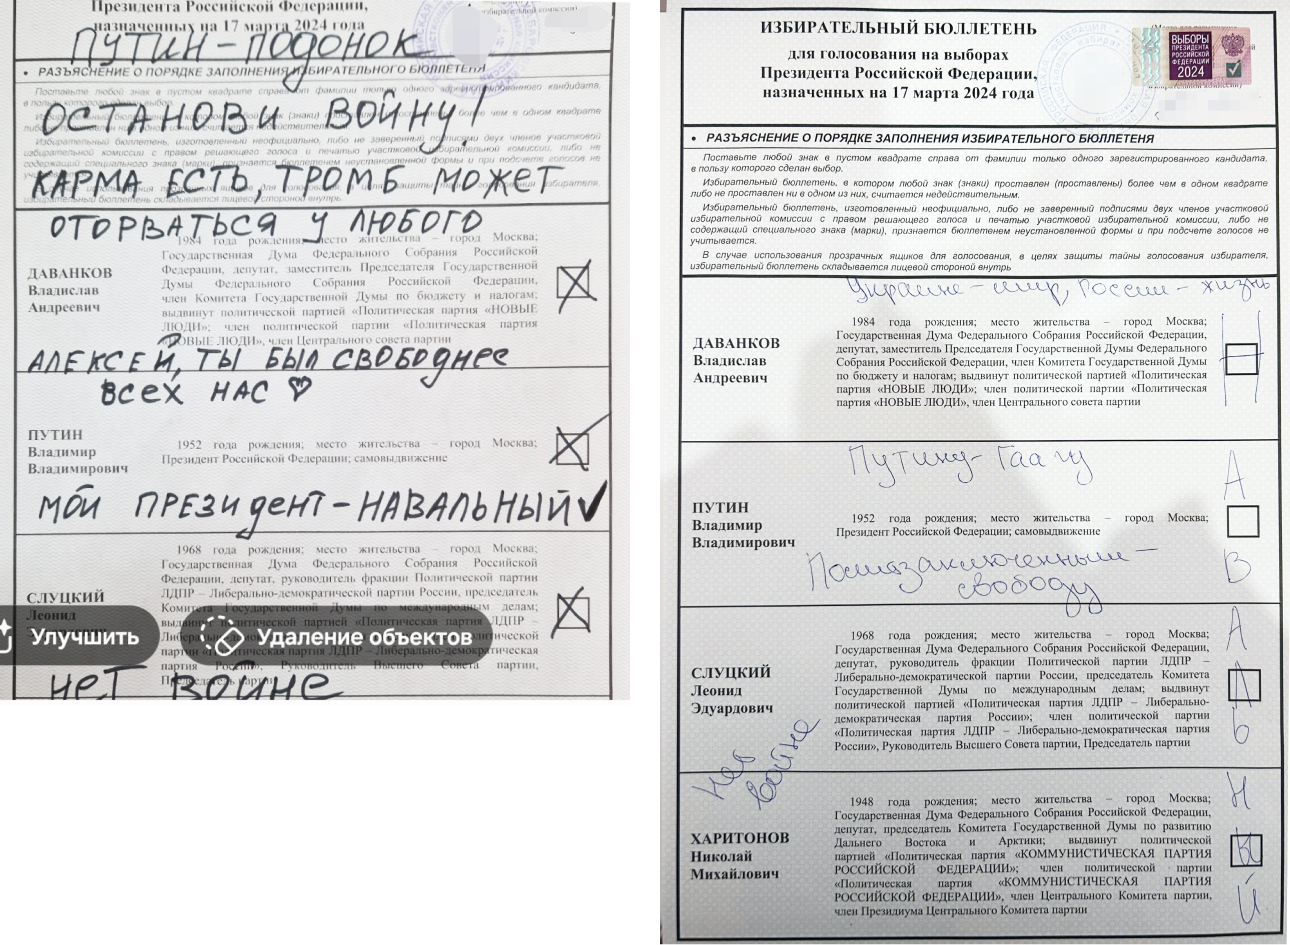 Президента Российской Федерации,
назначенных на 17 марта 2024 года
ПУТИН-ПОДОНОК
• РАЗЪЯСНЕНИЕ О ПОРЯДКЕ ЗАПОЛНЕНИЯ ИЗБИРАТЕЛЬНОГО БЮЛЛЕТЕНЯ
ОСТАНОВИ ВОЙНУ!
КАРМА ЕСТЬ ТРОМБ МОЖЕТ
ОТОРВАТЬСЯ У ЛЮБОГО
ДАВАНКОВ
Владислав
Андреевич
1984 года рождения; место жительства – город Москва;
Государственная Дума Федерального Собрания Российской
Федерации, депутат, заместитель Председателя Государственной
Думы Федерального Собрания Российской Федерации,
член Комитета Государственной Думы по бюджету и налогам;
выдвинут политической партией «Политическая партия «НОВЫЕ
ЛЮДИ»; член политической партии «Политическая партия
«НОВЫЕ ЛЮДИ», член Центрального совета партии
АЛЕКСЕЙ, ТЫ БЫЛ СВОБОДНЕЕ
ВСЕХ НАС ♡
ПУТИН
Владимир
Владимирович
1952 года рождения; место жительства – город Москва;
Президент Российской Федерации; самовыдвижение
МОЙ ПРЕЗИДЕНТ-НАВАЛЬНЫЙ ✓
СЛУЦКИЙ
Леонид
1968 года рождения; место жительства – город Москва;
Государственная Дума Федерального Собрания Российской
Федерации, депутат, руководитель фракции Политической партии
ЛДПР – Либерально-демократической партии России, председатель
Комитета Государственной Думы по международным делам;
Улучшить
Удаление объектов
НЕТ ВОЙНЕ
ИЗБИРАТЕЛЬНЫЙ БЮЛЛЕТЕНЬ
для голосования на выборах
Президента Российской Федерации,
назначенных на 17 марта 2024 года
ВЫБОРЫ
ПРЕЗИДЕНТА
РОССИЙСКОЙ
ФЕДЕРАЦИИ
2024
• РАЗЪЯСНЕНИЕ О ПОРЯДКЕ ЗАПОЛНЕНИЯ ИЗБИРАТЕЛЬНОГО БЮЛЛЕТЕНЯ
Поставьте любой знак в пустом квадрате справа от фамилии только одного зарегистрированного кандидата,
в пользу которого сделан выбор.
Избирательный бюллетень, в котором любой знак (знаки) проставлен (проставлены) более чем в одном квадрате
либо не проставлен ни в одном из них, считается недействительным.
Избирательный бюллетень, изготовленный неофициально, либо не заверенный подписями двух членов участковой
избирательной комиссии с правом решающего голоса и печатью участковой избирательной комиссии, либо не
содержащий специального знака (марки), признается бюллетенем неустановленной формы и при подсчете голосов не
учитывается.
В случае использования прозрачных ящиков для голосования, в целях защиты тайны голосования избирателя,
избирательный бюллетень складывается лицевой стороной внутрь
Украине-мир, России-жизнь
ДАВАНКОВ
Владислав
Андреевич
1984 года рождения; место жительства – город Москва;
Государственная Дума Федерального Собрания Российской Федерации,
депутат, заместитель Председателя Государственной Думы Федерального
Собрания Российской Федерации, член Комитета Государственной Думы
по бюджету и налогам; выдвинут политической партией «Политическая
партия «НОВЫЕ ЛЮДИ»; член политической партии «Политическая
партия «НОВЫЕ ЛЮДИ», член Центрального совета партии
Н
Путину-Гаагу
А
ПУТИН
Владимир
Владимирович
1952 года рождения; место жительства – город Москва;
Президент Российской Федерации; самовыдвижение
Политзаключенным-
свободу
В
А
СЛУЦКИЙ
Леонид
Эдуардович
1968 года рождения; место жительства – город Москва;
Государственная Дума Федерального Собрания Российской Федерации,
депутат, руководитель фракции Политической партии ЛДПР –
Либерально-демократической партии России, председатель Комитета
Государственной Думы по международным делам; выдвинут
политической партией «Политическая партия ЛДПР – Либерально-
демократическая партия России»; член политической партии
«Политическая партия ЛДПР – Либерально-демократическая партия
России», Руководитель Высшего Совета партии, Председатель партии
Л
Ь
Нет
войне
Н
ХАРИТОНОВ
Николай
Михайлович
1948 года рождения; место жительства – город Москва;
Государственная Дума Федерального Собрания Российской Федерации,
депутат, председатель Комитета Государственной Думы по развитию
Дальнего Востока и Арктики; выдвинут политической
партией «Политическая партия «КОММУНИСТИЧЕСКАЯ ПАРТИЯ
РОССИЙСКОЙ ФЕДЕРАЦИИ»; член политической партии
«Политическая партия «КОММУНИСТИЧЕСКАЯ ПАРТИЯ
РОССИЙСКОЙ ФЕДЕРАЦИИ», член Центрального Комитета партии,
член Президиума Центрального Комитета партии
Ы
Й